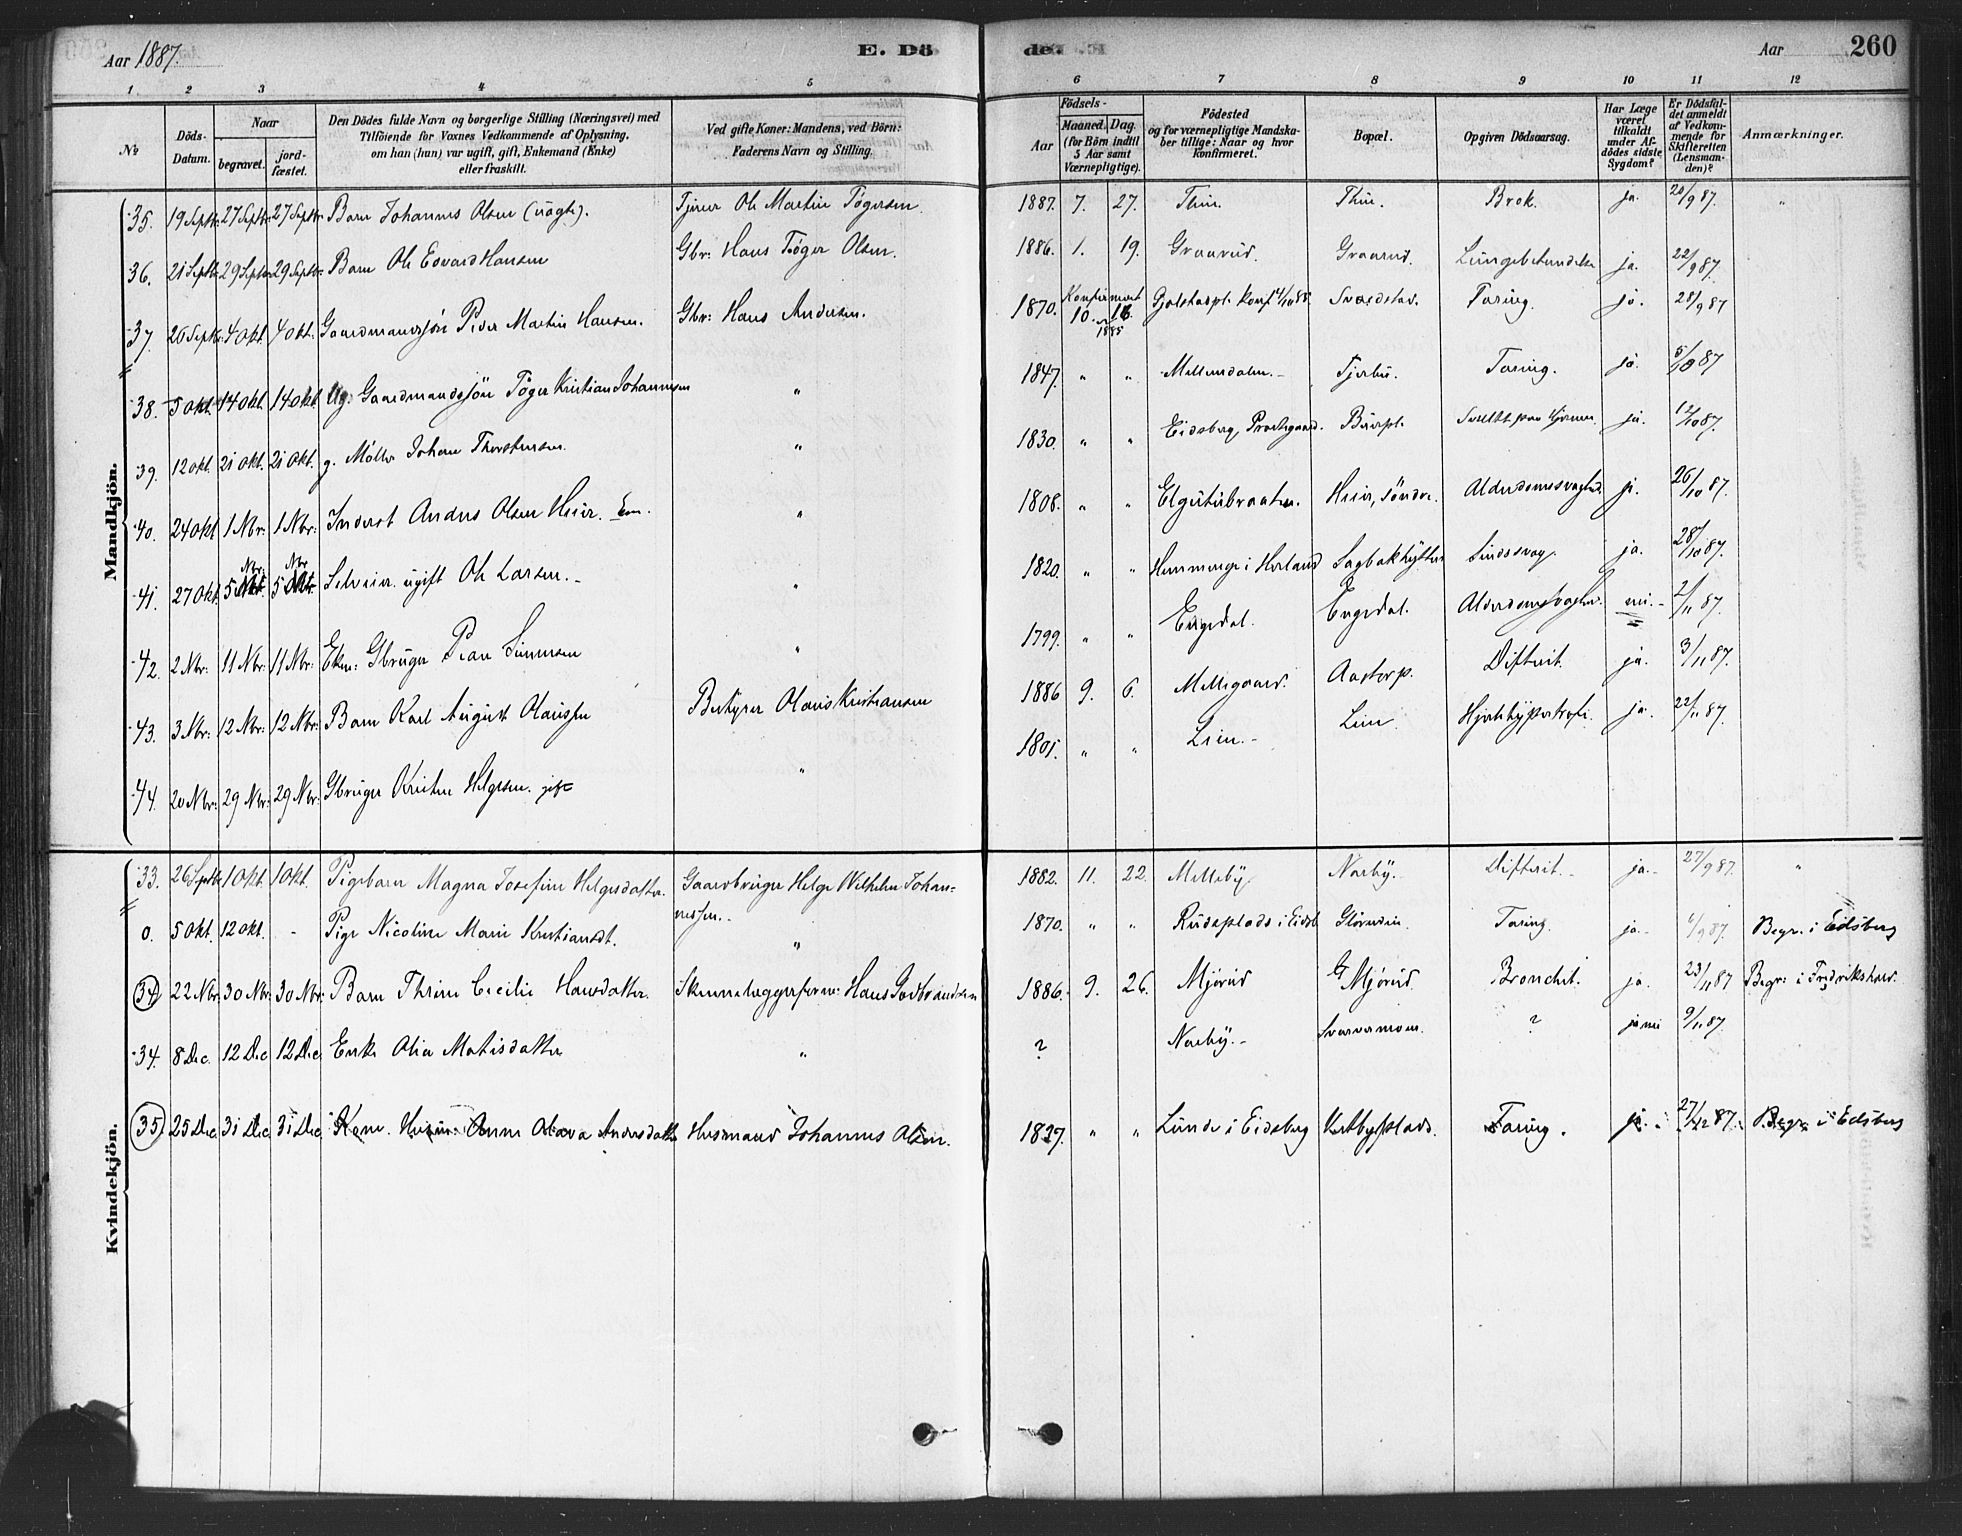 Aar 1887.
E. Dö
de.
Aar
260
1 2 3 4 5 6 7 8 9 10 11 12
No
Döds-Datum.
Naar
begravet.
jord-fæstet.
Den Dödes fulde Navn og borgerlige Stilling (Næringsvei) med
Tilföiende for Voxnes Vedkommende af Oplysning,
om han (hun) var ugift, gift, Enkemand (Enke)
eller fraskilt.
Ved gifte Koner: Mandens, ved Börn:
Faderens Navn og Stilling.
Aar
Födsels-
Maaned. Dag.
(for Börn indtil
5 Aar samt
Værnepligtige).
Födested
og for værnepligtige Mandska-
ber tillige: Naar og hvor
konfirmeret.
Bopæl.
Opgiven Dödsaarsag.
Har Læge
været
tilkaldt
under Af-
dödes sidste
Sygdom?
Er Dödsfal-
det anmeldt
af Vedkom-
mende for
Skifteretten
(Lensman-
den)?
Anmærkninger.
Mandkjön.
35. 19 Septbr 27 Septbr 27 Septbr Barn Johannes Olsen (uægte). Tjener Ole Martin Tøgersen. 1887. 7. 27. Thui. Thui. Brok. ja. 20/9 87. "
36. 21 Septbr 29 Septbr 29 Septbr Barn Ole Edvard Hansen Gbr: Hans Tøger Olsen. 1886. 1. 19. Graarud. Graarud. Lungebetændelse ja. 22/9 87.
37. 26 Septbr 4 Okt. 4 Okt. Gaardmandssön Peder Martin Hansen. Gbr: Hans Andersen. 1870. Konfirmert 10. 16. 1885 Tæring. ja. 28/9 87
38. 5 Okt. 14 Okt. 14 Okt. Ug. Gaardmandssön Tøger Kristian Johannesen " 1847. " " Tjerbu. Tæring. ja. 5/10 87
39. 12 Okt. 21 Okt. 21 Okt. g. Møller Johan Thorstensen. " 1830. " " Eidsberg Præstegaard. ja. 12/10 87.
40. 24 Okt 1 Nbr: 1 Nbr: Inderst Anders Olsen Heier. Em. " 1808. " " Elgetubraaten. Heier, söndre. Alderdomssvaghed. ja. 26/10 87.
41. 27 Okt. 5 Nbr. 5 Nbr. Selveier ugift Ole Larsen. " 1820. " " Hemminge i Herland Sagbakhytten Sindssvag. ja. 28/10 87.
42. 2 Nbr: 11 Nbr: 11 Nbr: Ekm: Gbruger Peder Simensen " 1799. " " Engedal. Engedal. Alderdomssvaghed. nei. 2/11 87.
43. 3 Nbr: 12 Nbr: 12 Nbr: Barn Karl August Olaussen Bestyrer Olaus Kristiansen 1886 9. 6. Mellegaard. Aastorp. Difterit. ja. 3/11 87.
44. 20 Nbr: 29 Nbr: 29 Nbr: Gbruger Kristen Helgesen. gift " 1801. " " Lein. Lein. Hjertehypertrofi. ja. 22/11 87.
Kvindekjön.
33. 26 Septbr 1 Okt. 1 Okt. Pigebarn Magna Josefine Helgesdatter. Gaardbruger Helge Wilhelm Johan-
nessen. 1882. 11. 22. Melleby. Narby. Difterit. ja. 27/9 87. "
0. 5 Okt. 12 Okt. - Pige Nicoline Marie Kristiansdt. " 1870. " " Rudsplads i Eidsb. Tæring. ja. 87. Begr. i Eidsberg
34 22 Nbr 30 Nbr. 30 Nbr: Barn Thrine Cecilie Hansdatter. Hans Gudbrandsen 1886. 9. 26. Mjørud G Mjørud. Bronchit. ja. 23/11 87 Begr. i Fredrikshald.
34. 8 Dec. 12 Dec 12 Dec Enke Olia Mathisdatter " ? Narby. ? ja nei 9/11 87.
35 25 Dec 31 Dec 31 Dec Kone. Anne Olava Andersdatter Husmand Johannes Olsen. 1837. " " Lunde i Eidsberg Tæring. ja. 27/12 87. Begr. i Eidsberg